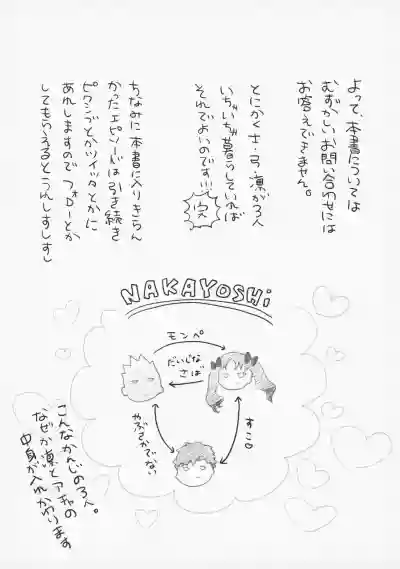 よって、本書については
むずかしいお問い合わせには
お答えできません。
とにかくさ・弓・凛が3人
いちゃいちゃ暮らしていれば
それでよいのです!!!
完
ちなみに本書に入りきらん
かったエピソードは引き続き
ピクシブとかツイッタとかに
あれしますので フォローとか
してもらえるとうれしすしすし
NAKAYOSHi
モンペ
だいじな
さば
すこ
やぶさかでない
こんなかんじの3人。
なぜか凛とアチャの
中身が入れかわります